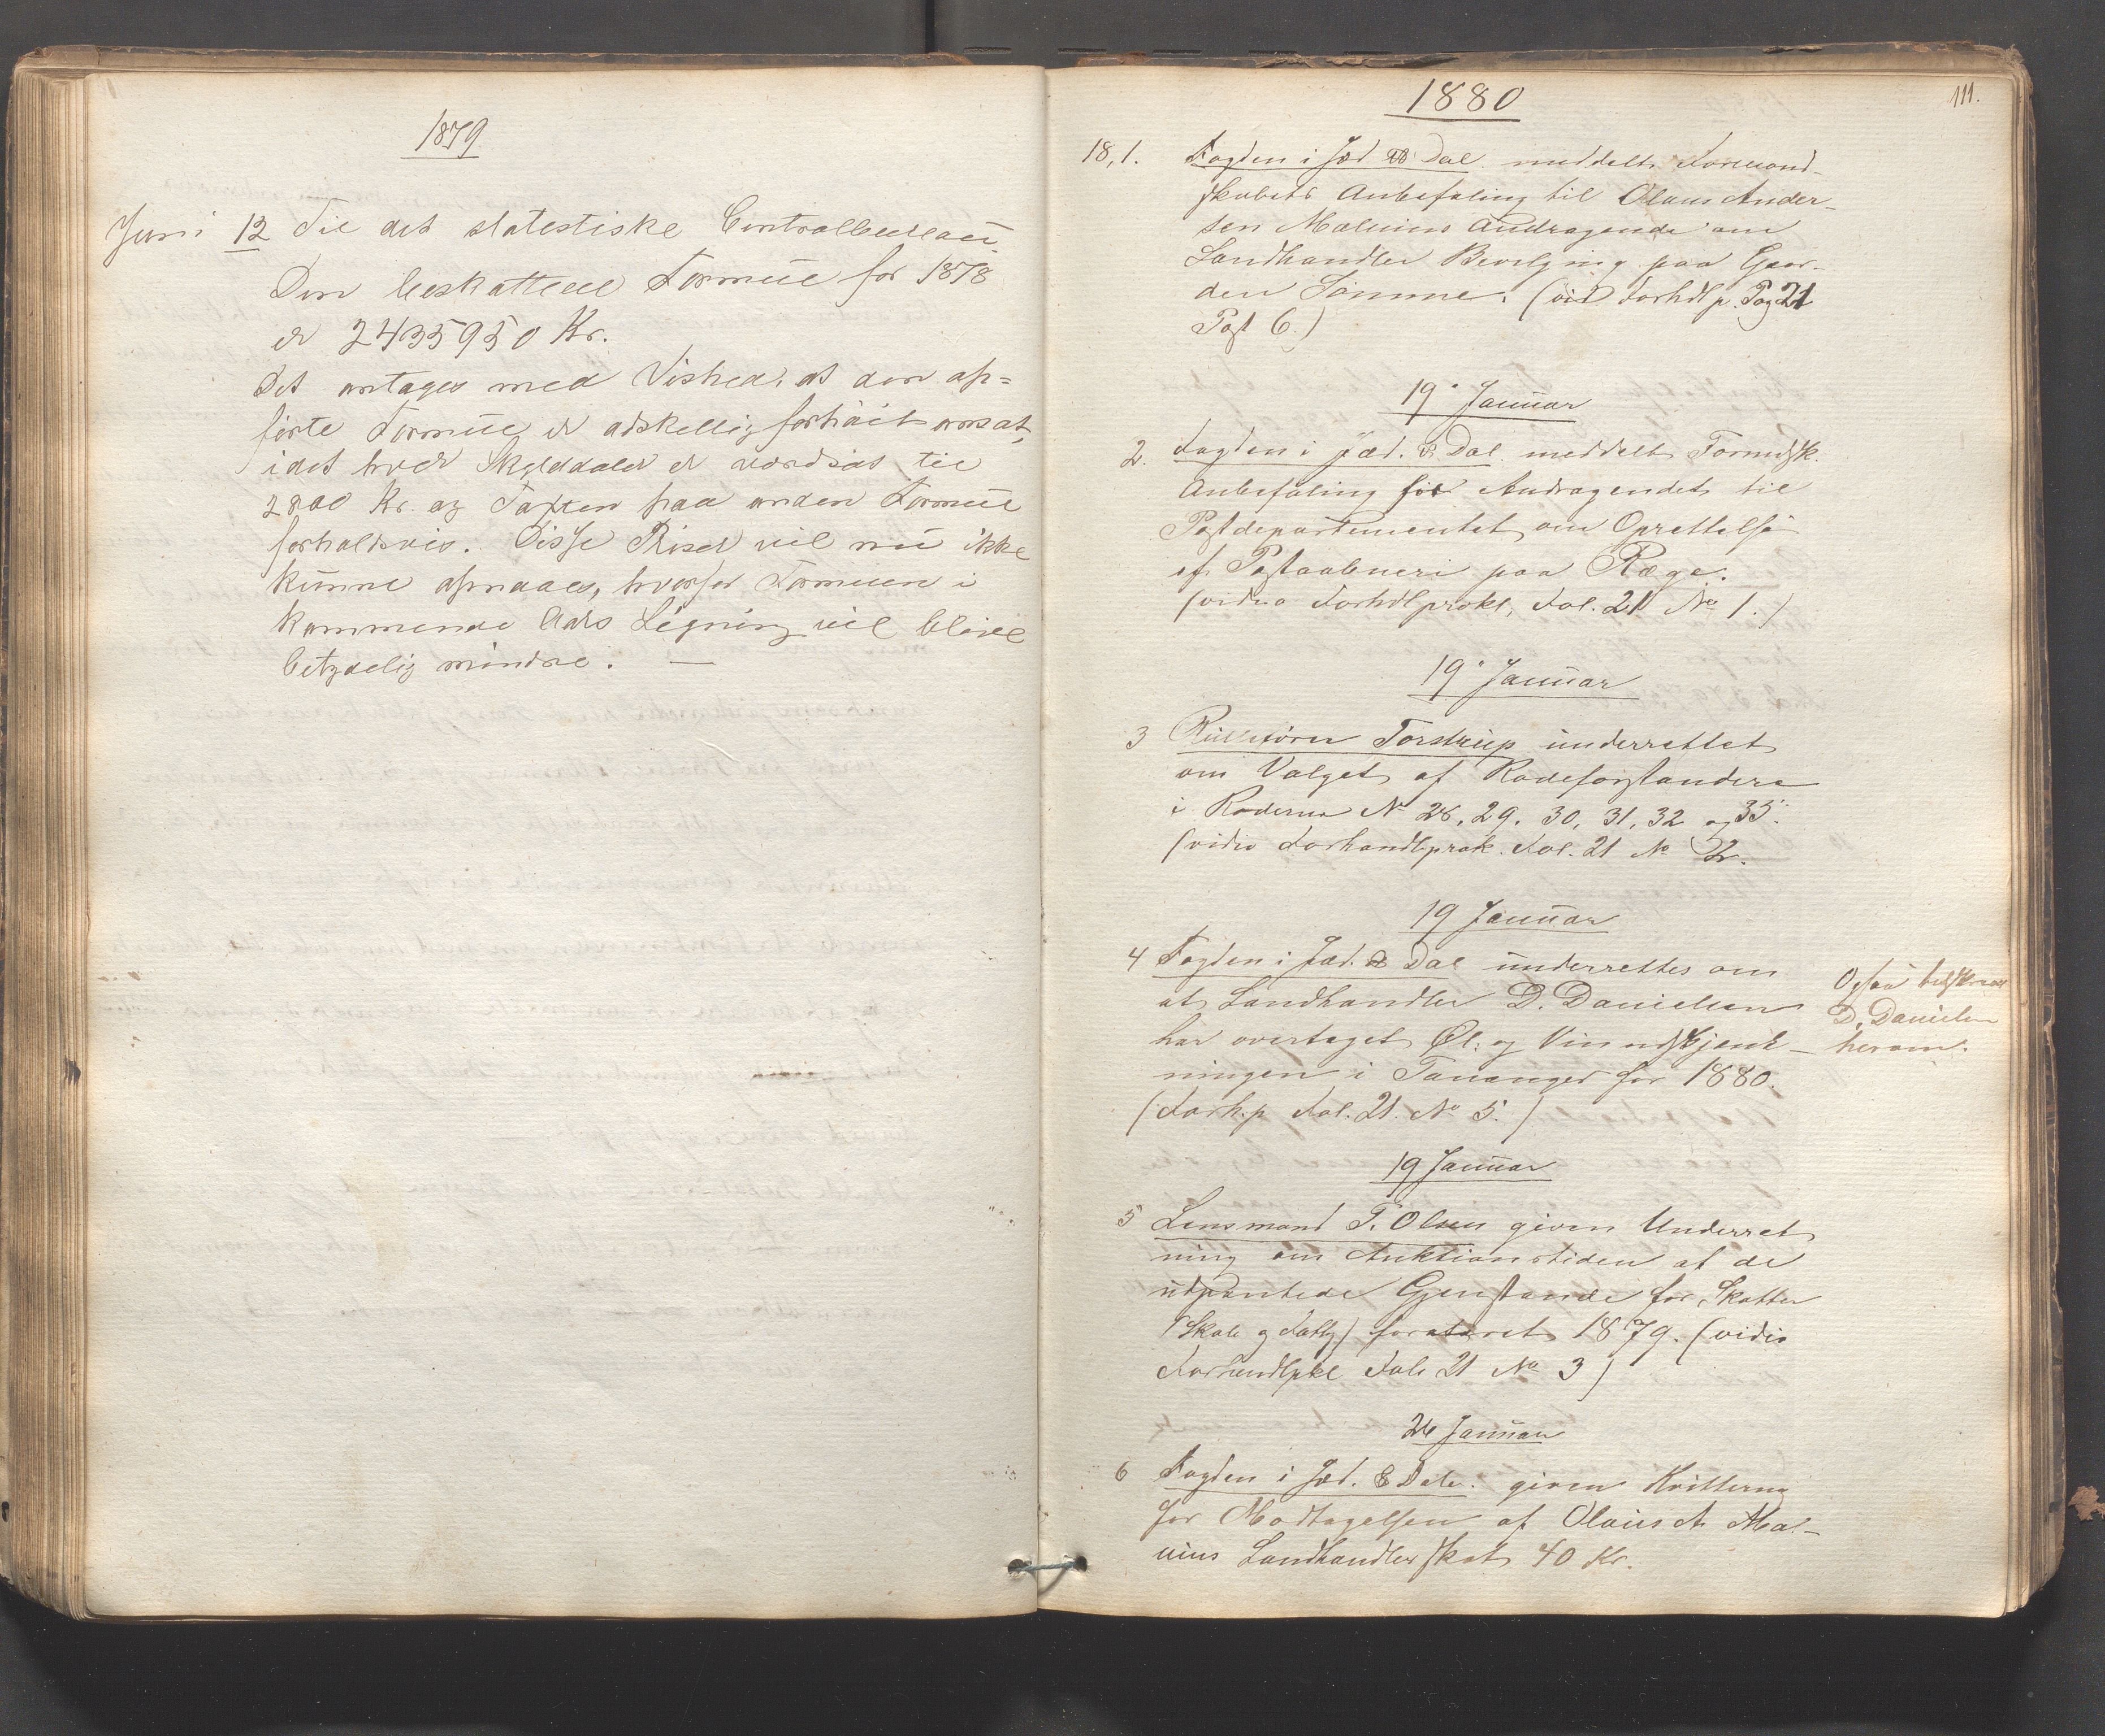 1879
Juni 12 Til det statestiske Centralbureau.
Den beskattede Formue for 1878
er 2435950 Kr.
Det antages med Vished, at den op=
førte Formue er adskellig forhøit ansat,
idet hver Skylddaler er værdsat til
2800 Kr. og Taxten paa anden Formue
forholdsvis. Disse Priser vil nu ikke
kunne opnaaes, hvorfor Formuen i
kommende Aars Ligning vil blive
betydelig mindre. —
1880
111.
18, 1. Fogden i Jæd & Dal. meddelt Formand-
skabets Anbefaling til Olaus Ander-
sen Malmins Andragende om
Landhandler Bevilgning paa Gaar-
den Sømme. (vid Forhdlp. Pag 21
Post 6.)
19 Januar
2. Fogden i Jæd. & Dal. meddelt Formdsk.
Anbefaling for Andragendet til
Postdepartementet om Oprettelse
af Postaabneri paa Ræge.
(vidia Forhdlprokl, Fol. 21 No 1.)
19 Januar
3 Torstrup underrettet
om Valget af Rodeforstandere
i Roderne No 26, 29. 30, 31, 32 og 35.
(vidio Forhandlprok. Fol. 21 No 2.
19 Januar
4 Fogden i Jæd. & Dal underrettes om
at Landhandler D. Danielsen
har overtaget Øl- og Vinudskjænk-
ningen i Tananger for 1880.
(Forh.p Fol. 21. No 5.)
Ogsaa tilskrevet
D. Danielsen
herom.
19 Januar
5 Lensmand T. Olsen given Underret
ning om Auktionstiden af de
udpantede Gjenstande for Skatter
(Skole og Fattg) for Aaret 1879. (vidio
Forhandlpkl Fol. 21 No 3)
26 Januar
6 Fogden i Jæd. & Dale. given Kvittering
for Modtagelsen af Olaus A. Mal-
mins Landhandlerskat 40 Kr.